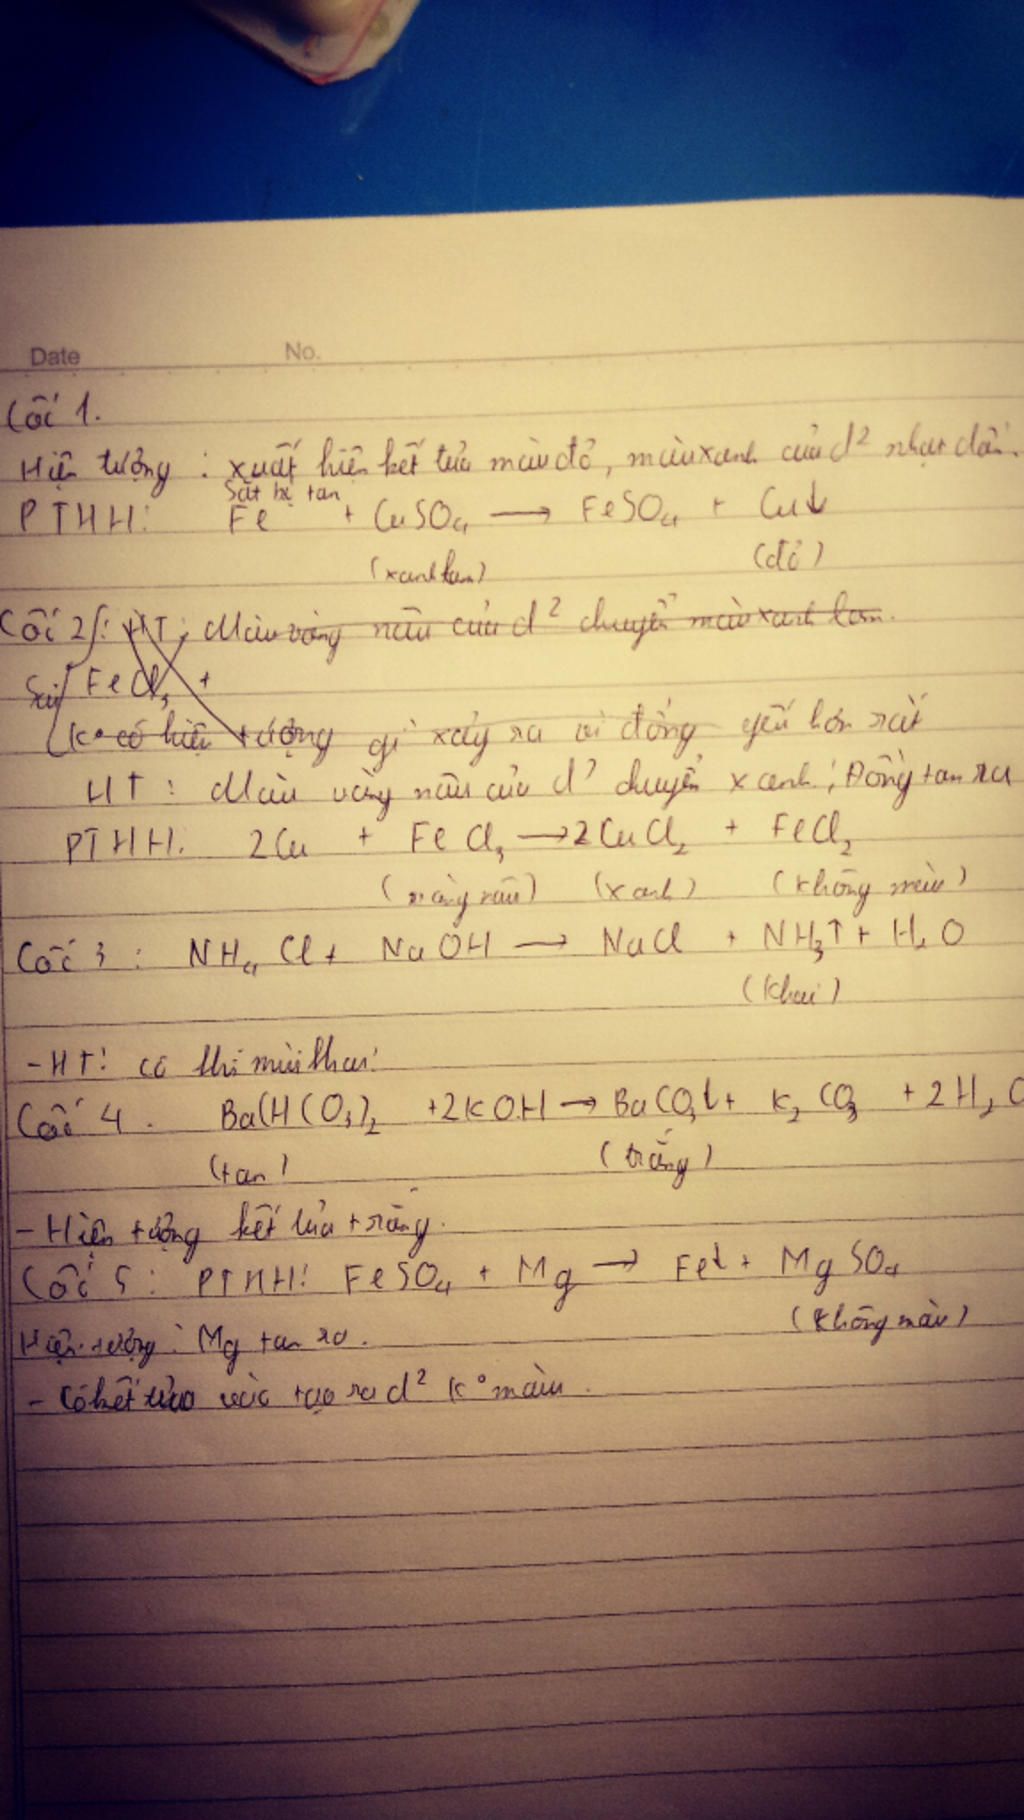 Date No.
Cốc 1.
Hiện tượng : xuất hiện kết tủa màu đỏ, màu xanh của d² nhạt dần.
Sắt bị tan
PTHH: Fe + CuSO₄ → FeSO₄ + Cu↓
(xanh lam) (đỏ)
Cốc 2: HT: Màu vàng nâu của d² chuyển màu xanh lam.
FeCl₃ +
K° có hiện tượng gì xảy ra vì đồng yếu hơn sắt
HT : Màu vàng nâu của d² chuyển xanh; Đồng tan ra
PTHH: 2Cu + FeCl₃ → 2CuCl₂ + FeCl₂
(vàng nâu) (xanh) (không màu)
Cốc 3 : NH₄Cl + NaOH → NaCl + NH₃↑ + H₂O
(khai)
- HT: có khí mùi khai
Cốc 4. Ba(HCO₃)₂ + 2KOH → BaCO₃↓ + K₂CO₃ + 2H₂O
(tan) (trắng)
- Hiện tượng kết tủa trắng.
Cốc 5 : PTHH: FeSO₄ + Mg → Fe↓ + MgSO₄
(không màu)
Hiện tượng : Mg tan ra.
- Có kết tủa và tạo ra d² k° màu.